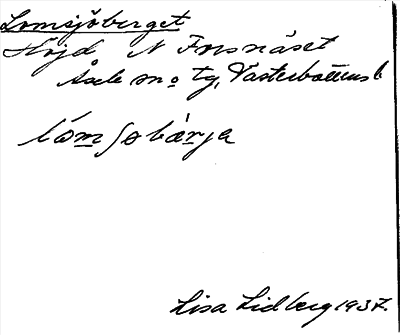 Lomsjöberget
Höjd N Forsnäset
Åsele sn o tg, Västerbottens l
Lisa Lidberg 1937.